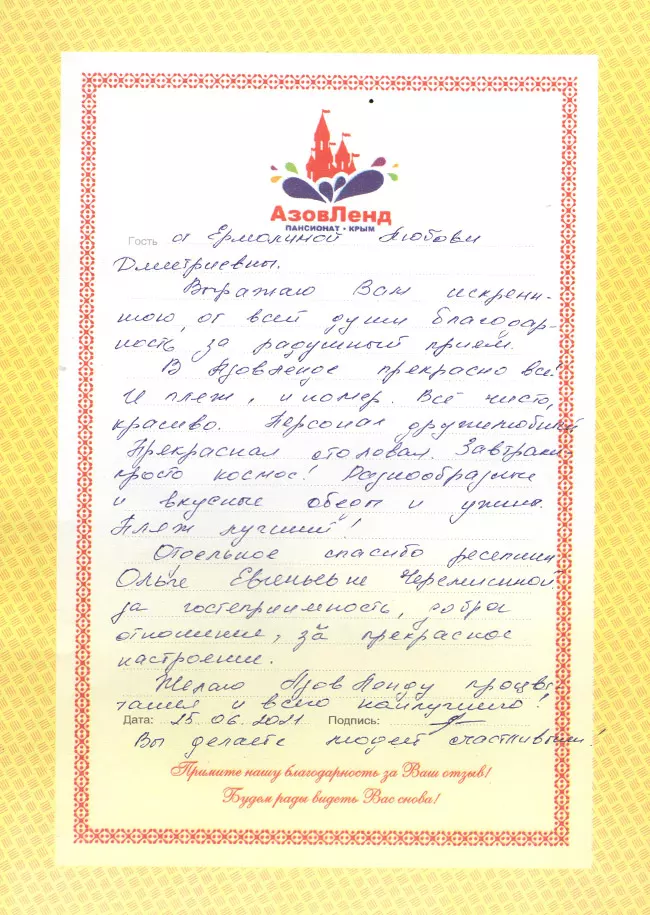 АзовЛенд
ПАНСИОНАТ • КРЫМ
Гость от Ермолиной Любови
Дмитриевны.
Выражаю Вам искрен-
нюю, от всей души благодар-
ность, за радушный прием.
В АзовЛенде прекрасно всё!
И пляж, и номер. Всё чисто,
красиво. Персонал дружелюбный
Прекрасная столовая. Завтраки-
просто космос! Разнообразные
и вкусные обеды и ужины.
Пляж лучший!
Отдельное спасибо ресепшн
Ольге Евгеньевне Черемисиной
за гостеприимность, доброе
отношение, за прекрасное
настроение.
Желаю АзовЛенду процве-
тания и всего наилучшего!
Дата: 25.06.2021 Подпись:
Вы делаете людей счастливыми!
Примите нашу благодарность за Ваш отзыв!
Будем рады видеть Вас снова!